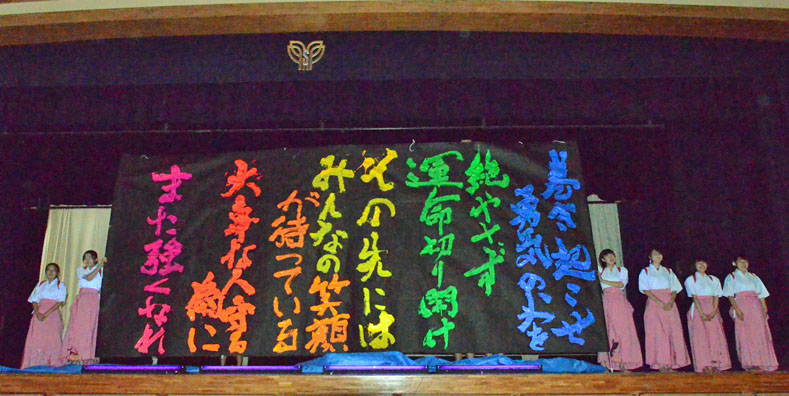 巻き起こせ
勇気の火を
絶やさず
運命切り開け
その先には
みんなの笑顔
が待っている
大事な人守る
為に
また強くなれ